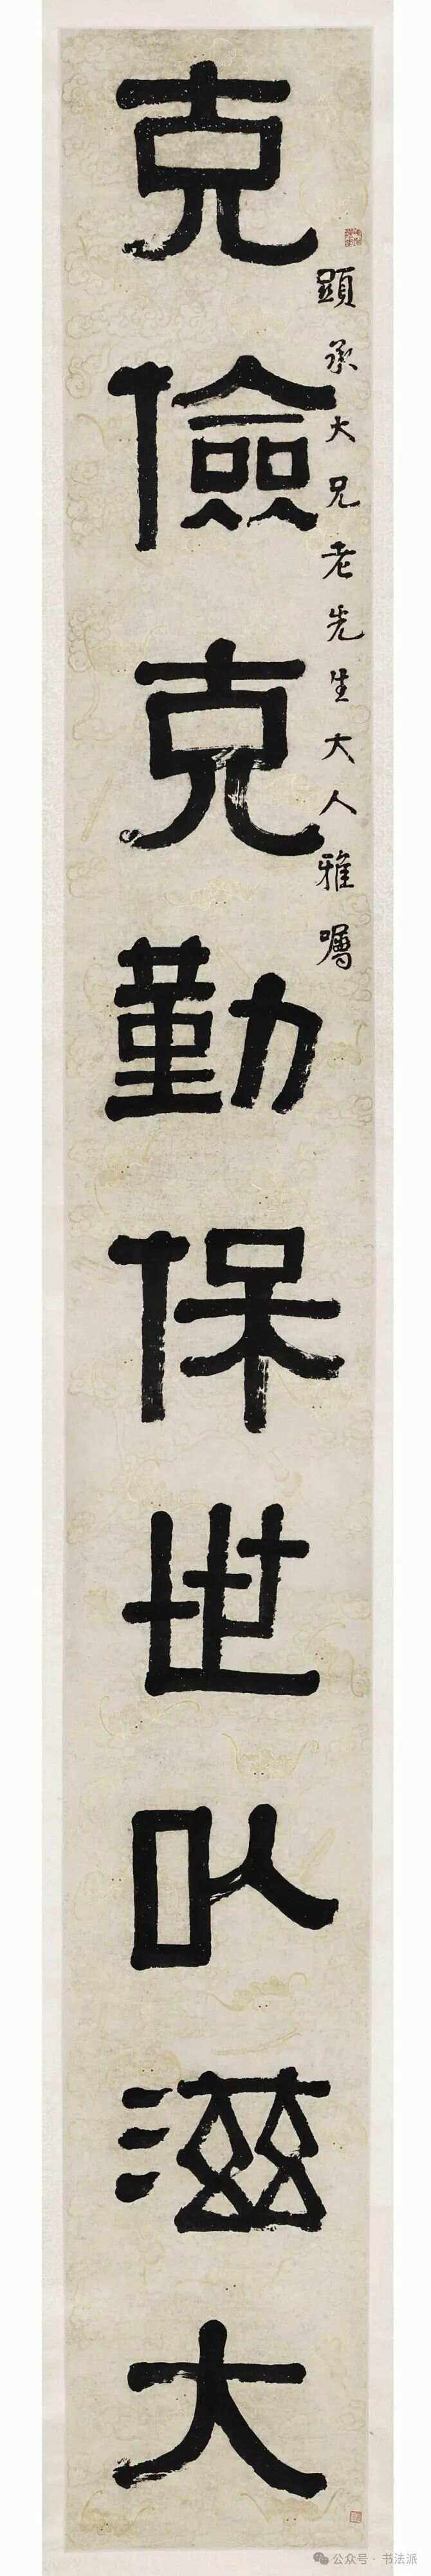 克儉克勤保世㠯滋大
顕承大兄老先生大人雅囑
公众号·书法派